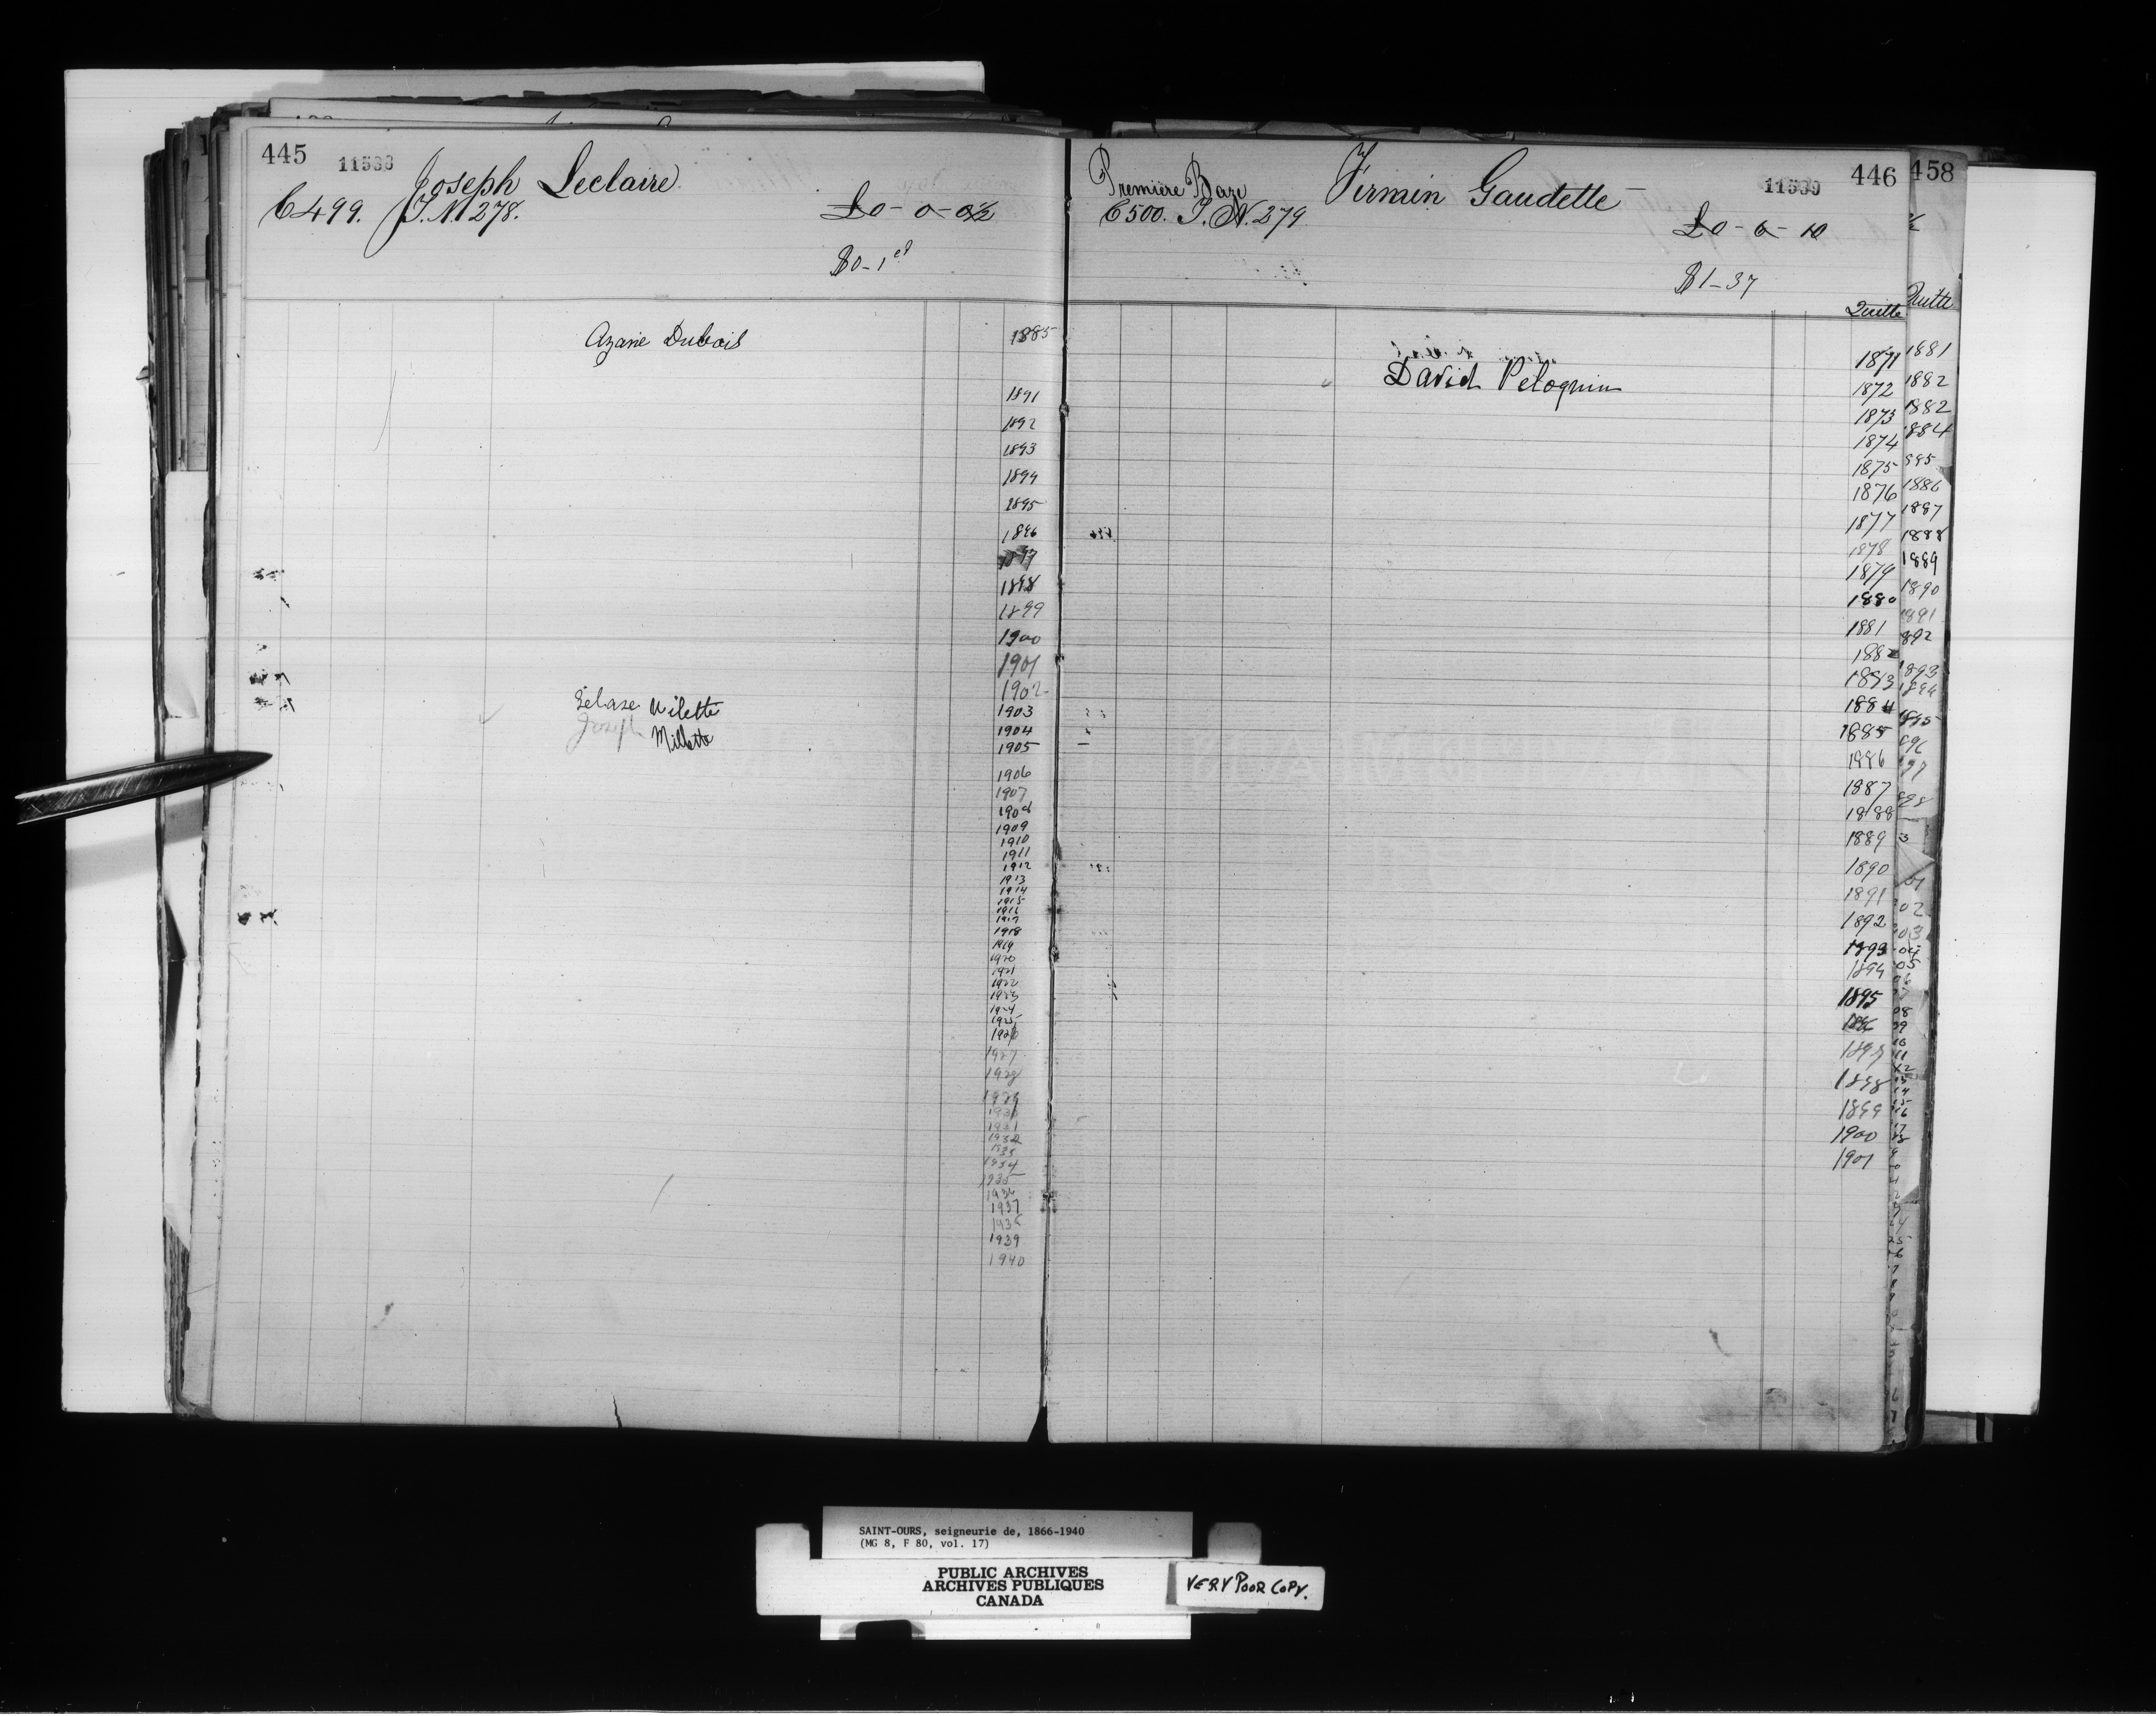 445 11538 Joseph Leclaire
C 499. T. N 278. £0-0-0½
$0-1 ct
Azarie Dubois 1885
1891
1892
1893
1894
1895
1896
1897
1898
1899
1900
1901
1902
Milette 1903
Joseph Millette 1904
1905
1906
1907
1908
1909
1910
1911
1912
1913
1914
1915
1916
1917
1918
1919
1920
1921
1922
1923
1924
1925
1926
1927
1928
1929
1930
1931
1932
1933
1934
1935
1936
1937
1938
1939
1940
Première Firmin Gaudette 11539 446
C 500. T. N. 279 £0-6-10
$1-37
Quitte
1871
David Peloquin 1872
1873
1874
1875
1876
1877
1878
1879
1880
1881
1882
1883
1884
1885
1886
1887
1888
1889
1890
1891
1892
1893
1894
1895
1896
1897
1898
1899
1900
1901
458
Quitte
1881
1882
1882
1884
1886
1887
1888
1889
1890
1891
892
1893
1894
SAINT-OURS, seigneurie de, 1866-1940
(MG 8, F 80, vol. 17)
PUBLIC ARCHIVES
ARCHIVES PUBLIQUES
CANADA
VERY POOR COPY.